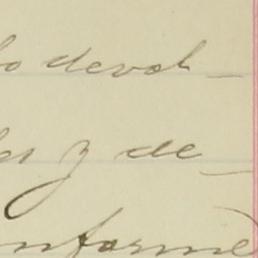 do devol_
las y de_
informe